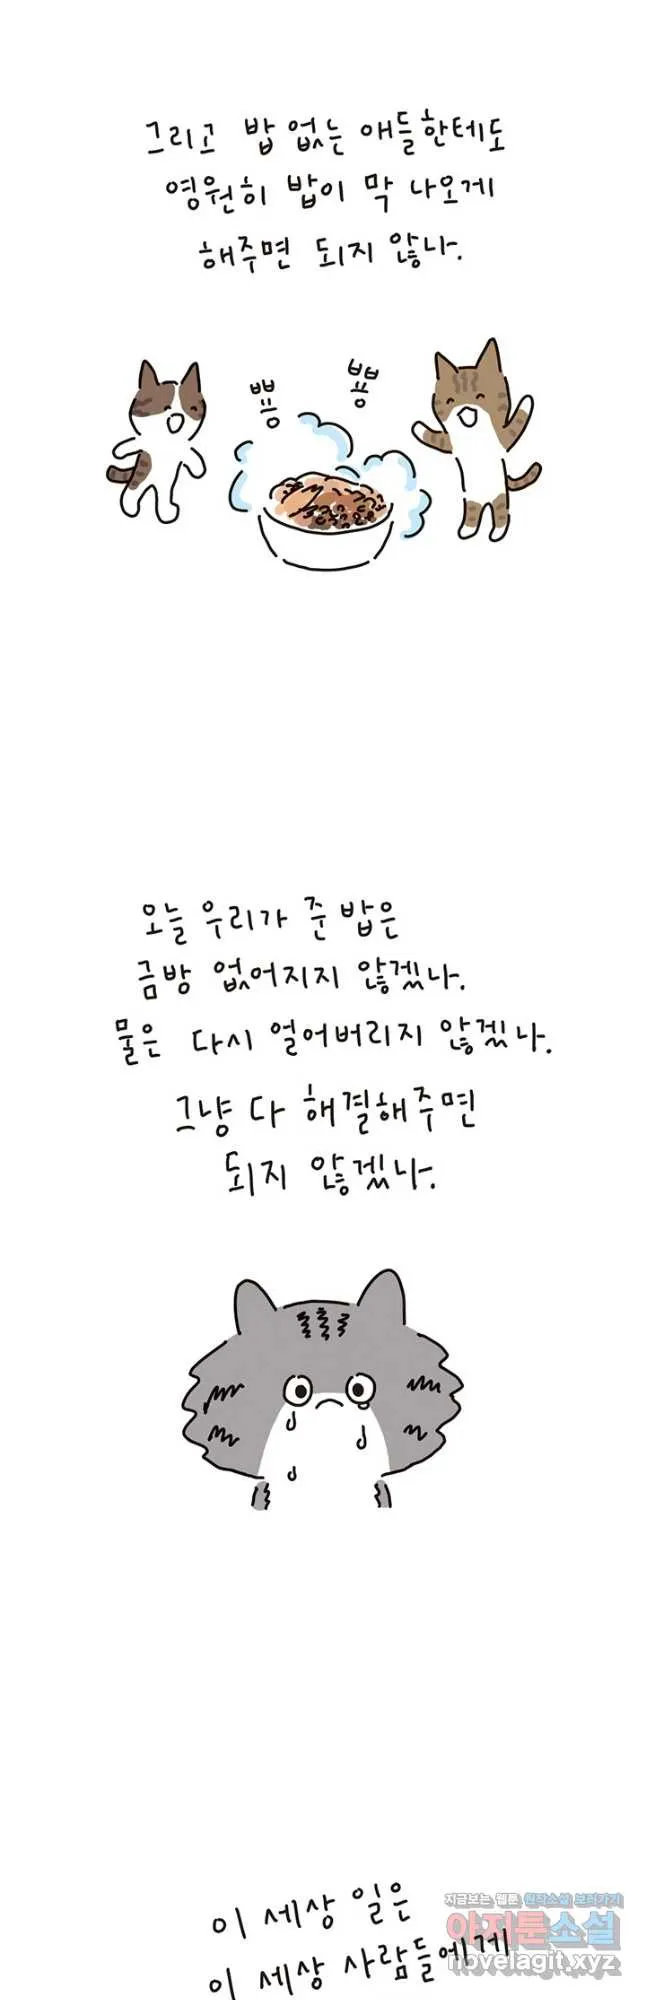 그리고 밥 없는 애들한테도
영원히 밥이 막 나오게
해주면 되지 않나.
뿅
뿅
오늘 우리가 준 밥은
금방 없어지지 않겠나.
물은 다시 얼어버리지 않겠나.
그냥 다 해결해주면
되지 않겠나.
이 세상 일은
이 세상 사람들에게
지금보는 웹툰 원작소설 보러가기
아지툰소설
novelagit.xyz